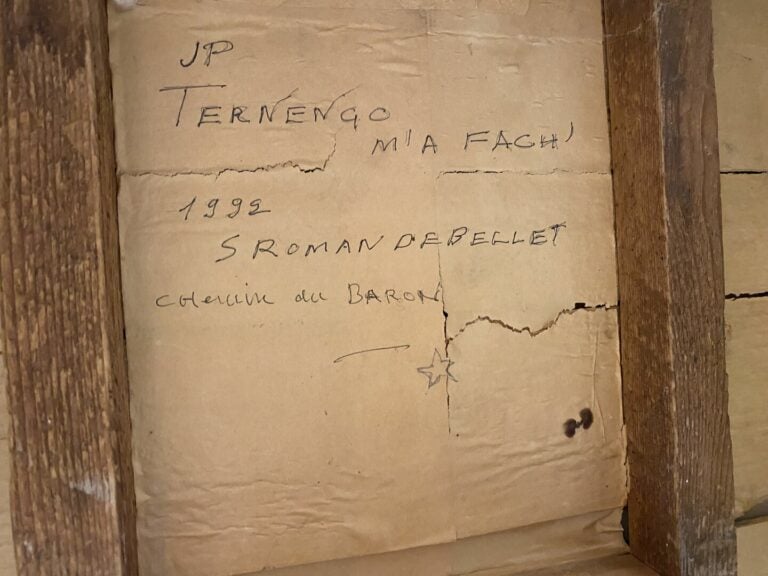 JP
TERNENGO
M'A FACH'
1992
S ROMAN DE BELLET
CHemin du BARON